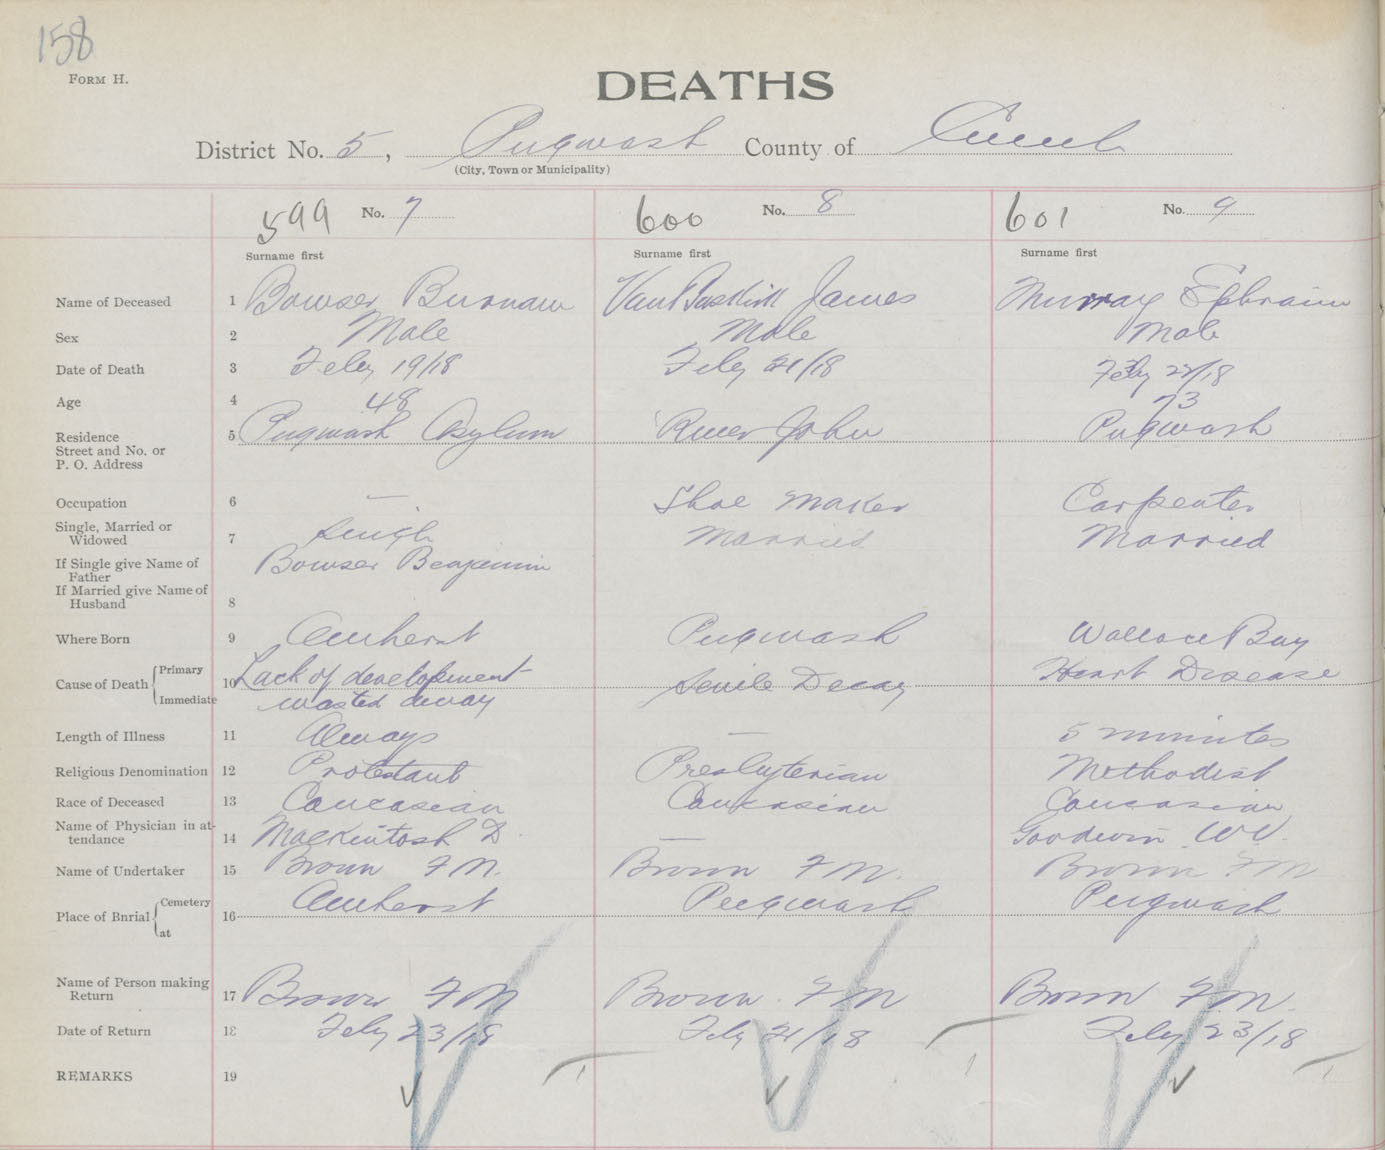 158
FORM H.
DEATHS
District No. 5, Pugwash County of Cumb
(City, Town or Municipality)
599 No. 7 600 No. 8 601 No. 9
Surname first Surname first Surname first
Name of Deceased 1 Bowser Burnam VanBuskirk James Murray Ephraim
Sex 2 Male Male Male
Date of Death 3 Feby 19/18 Feby 21/18 Feby 22/18
Age 4 48 73
Residence 5 Pugwash Asylum River John Pugwash
Street and No. or
P. O. Address
Occupation 6 — Shoe Maker Carpenter
Single, Married or
Widowed 7 Single Married Married
If Single give Name of
Father Bowser Benjamin
If Married give Name of
Husband 8
Where Born 9 Amherst Pugwash Wallace Bay
Cause of Death Primary 10 Lack of development Senile Decay Heart Disease
Immediate wasted away
Length of Illness 11 Always — 5 minutes
Religious Denomination 12 Protestant Presbyterian Methodist
Race of Deceased 13 Caucasian Caucasian Caucasian
Name of Physician in at-
tendance 14 Mackintosh D. — Goodwin W.
Name of Undertaker 15 Brown F M. Brown F M. Brown F M
Place of Bnrial Cemetery 16 Amherst Pugwash Pugwash
at
Name of Person making
Return 17 Brown F M Brown F M Brown F M.
Date of Return 18 Feby 23/18 Feby 21/18 Feby 23/18
REMARKS 19